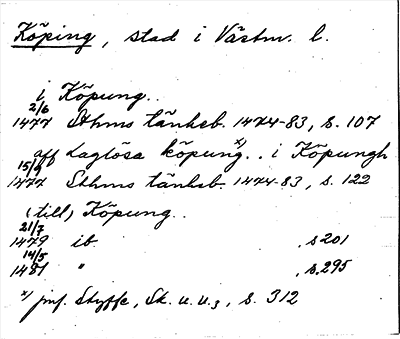 Köping, stad i Västm. l.
i Köpung..
2/6
1477 Sthms tänkeb. 1474-83, s. 107
aff Laglösa köpung x).. i Köpungh
15/9
1477 Sthms tänkeb. 1474-83, s. 122
(till) Köpung..
21/7
1479 ib. , s 201
14/5
1481 " , s. 295
x) jmf. Styffe, Sk. u. u.3, s. 312